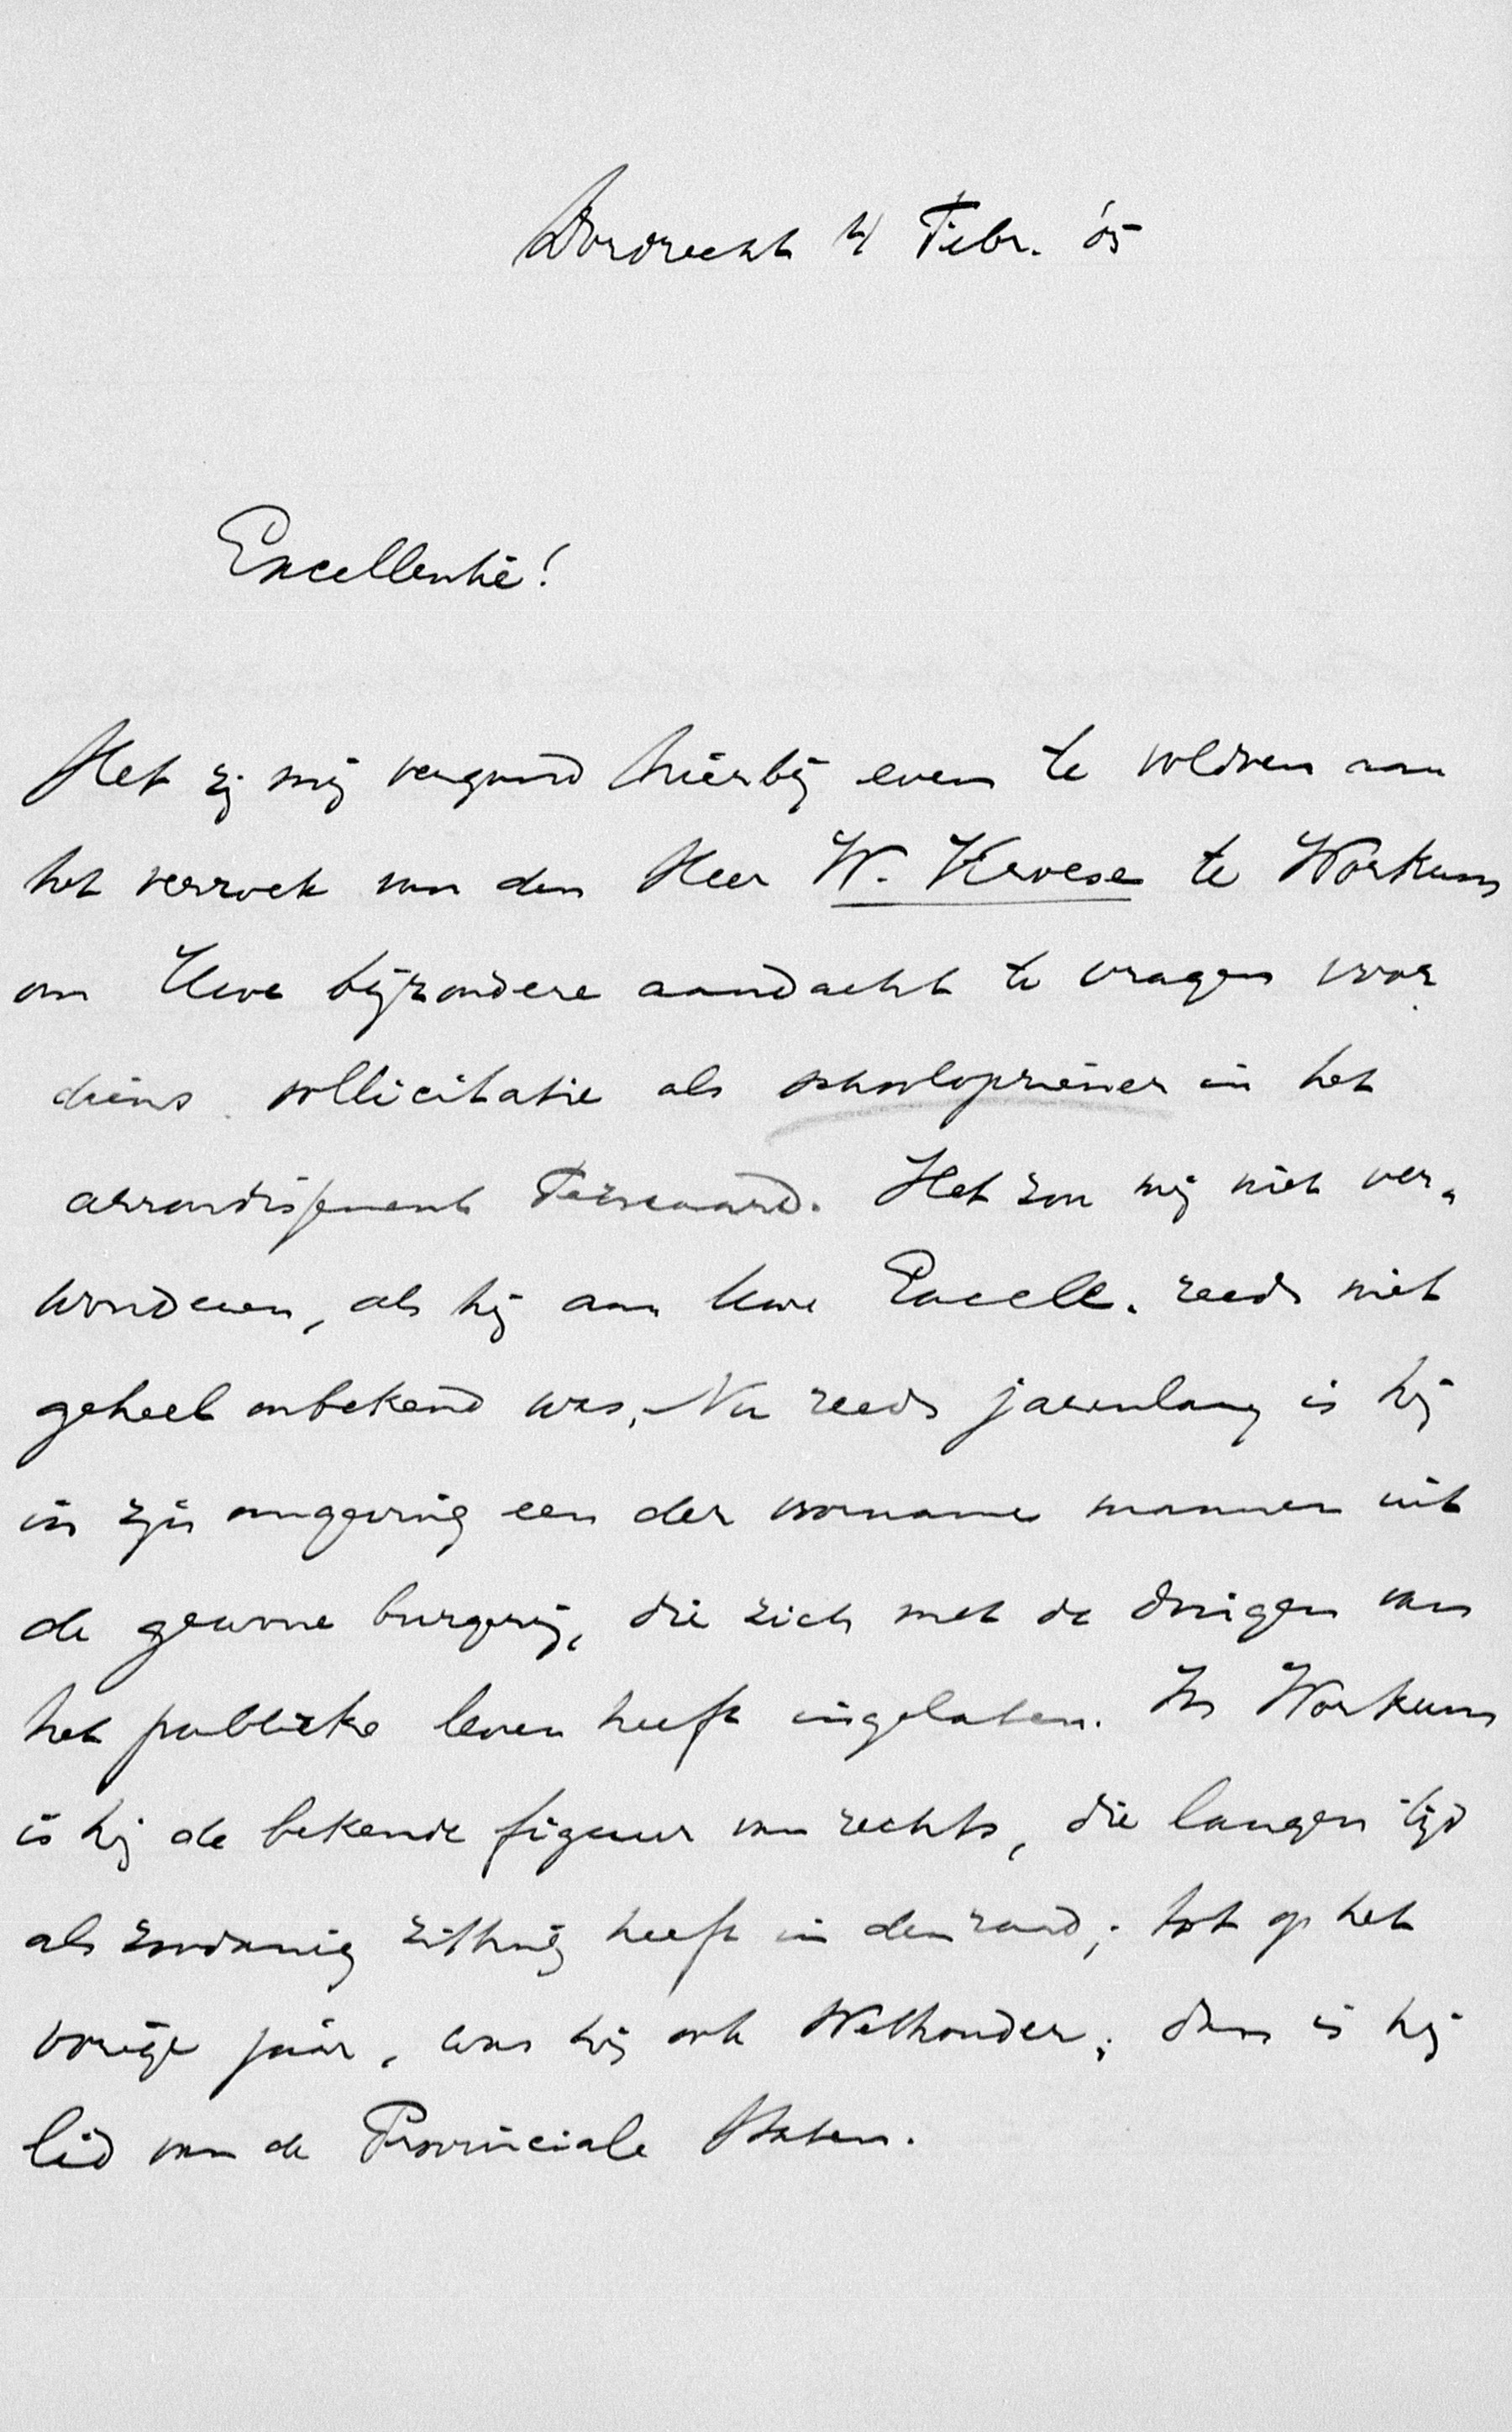 Dordrecht 4 Febr. '05
Excellentie!
Het zij mij vergund hierbij even te voldoen aan
het verzoek van den Heer W. Kroese te Workum
om Uwe bijzondere aandacht te vragen voor
diens sollicitatie als schoolopziener in het
arrondissement Ferwaard. Het zou mij niet ver„
wonderen, als hij aan Uwe Excell. reeds niet
geheel onbekend was. Nu reeds jarenlang is hij
in zijn omgeving een der voorname mannen uit
de gewone burgerij, die zich met de dingen van
het publieke leven heeft ingelaten. In Workum
is hij de bekende figuur van rechts, die langen tijd
als zoodanig zitting heeft in den raad; tot op het
vorige jaar, was hij ook Wethouder; dan is hij
lid van de Provinciale Staten.